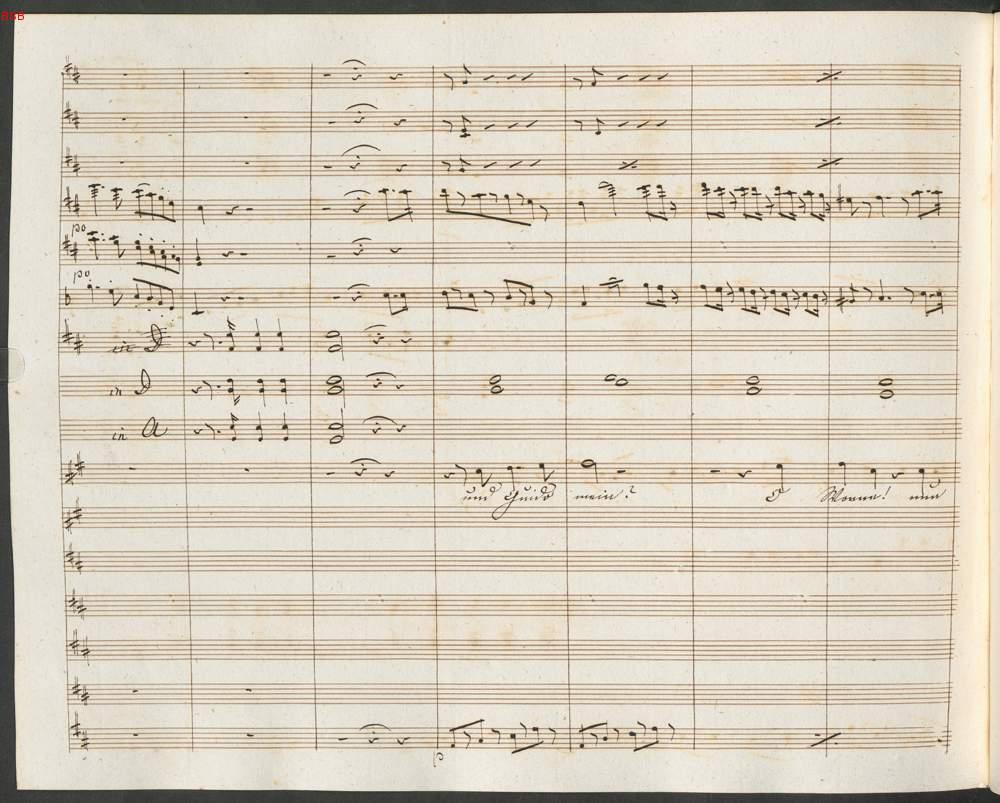 BSB
po
po
in D
in D
in A
und Guido mein? O Wonne! nun
p